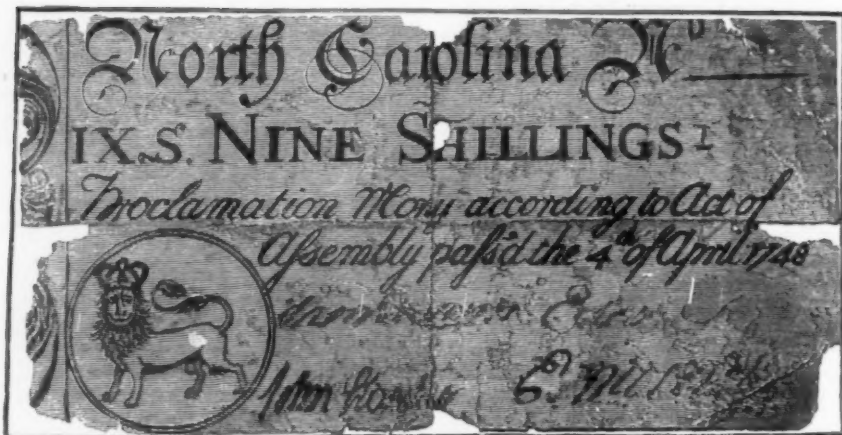 North Carolina No
IX.S. NINE SHILLINGS
Proclamation Mony according to Act of
Assembly pass'd the 4th of April 1748
John